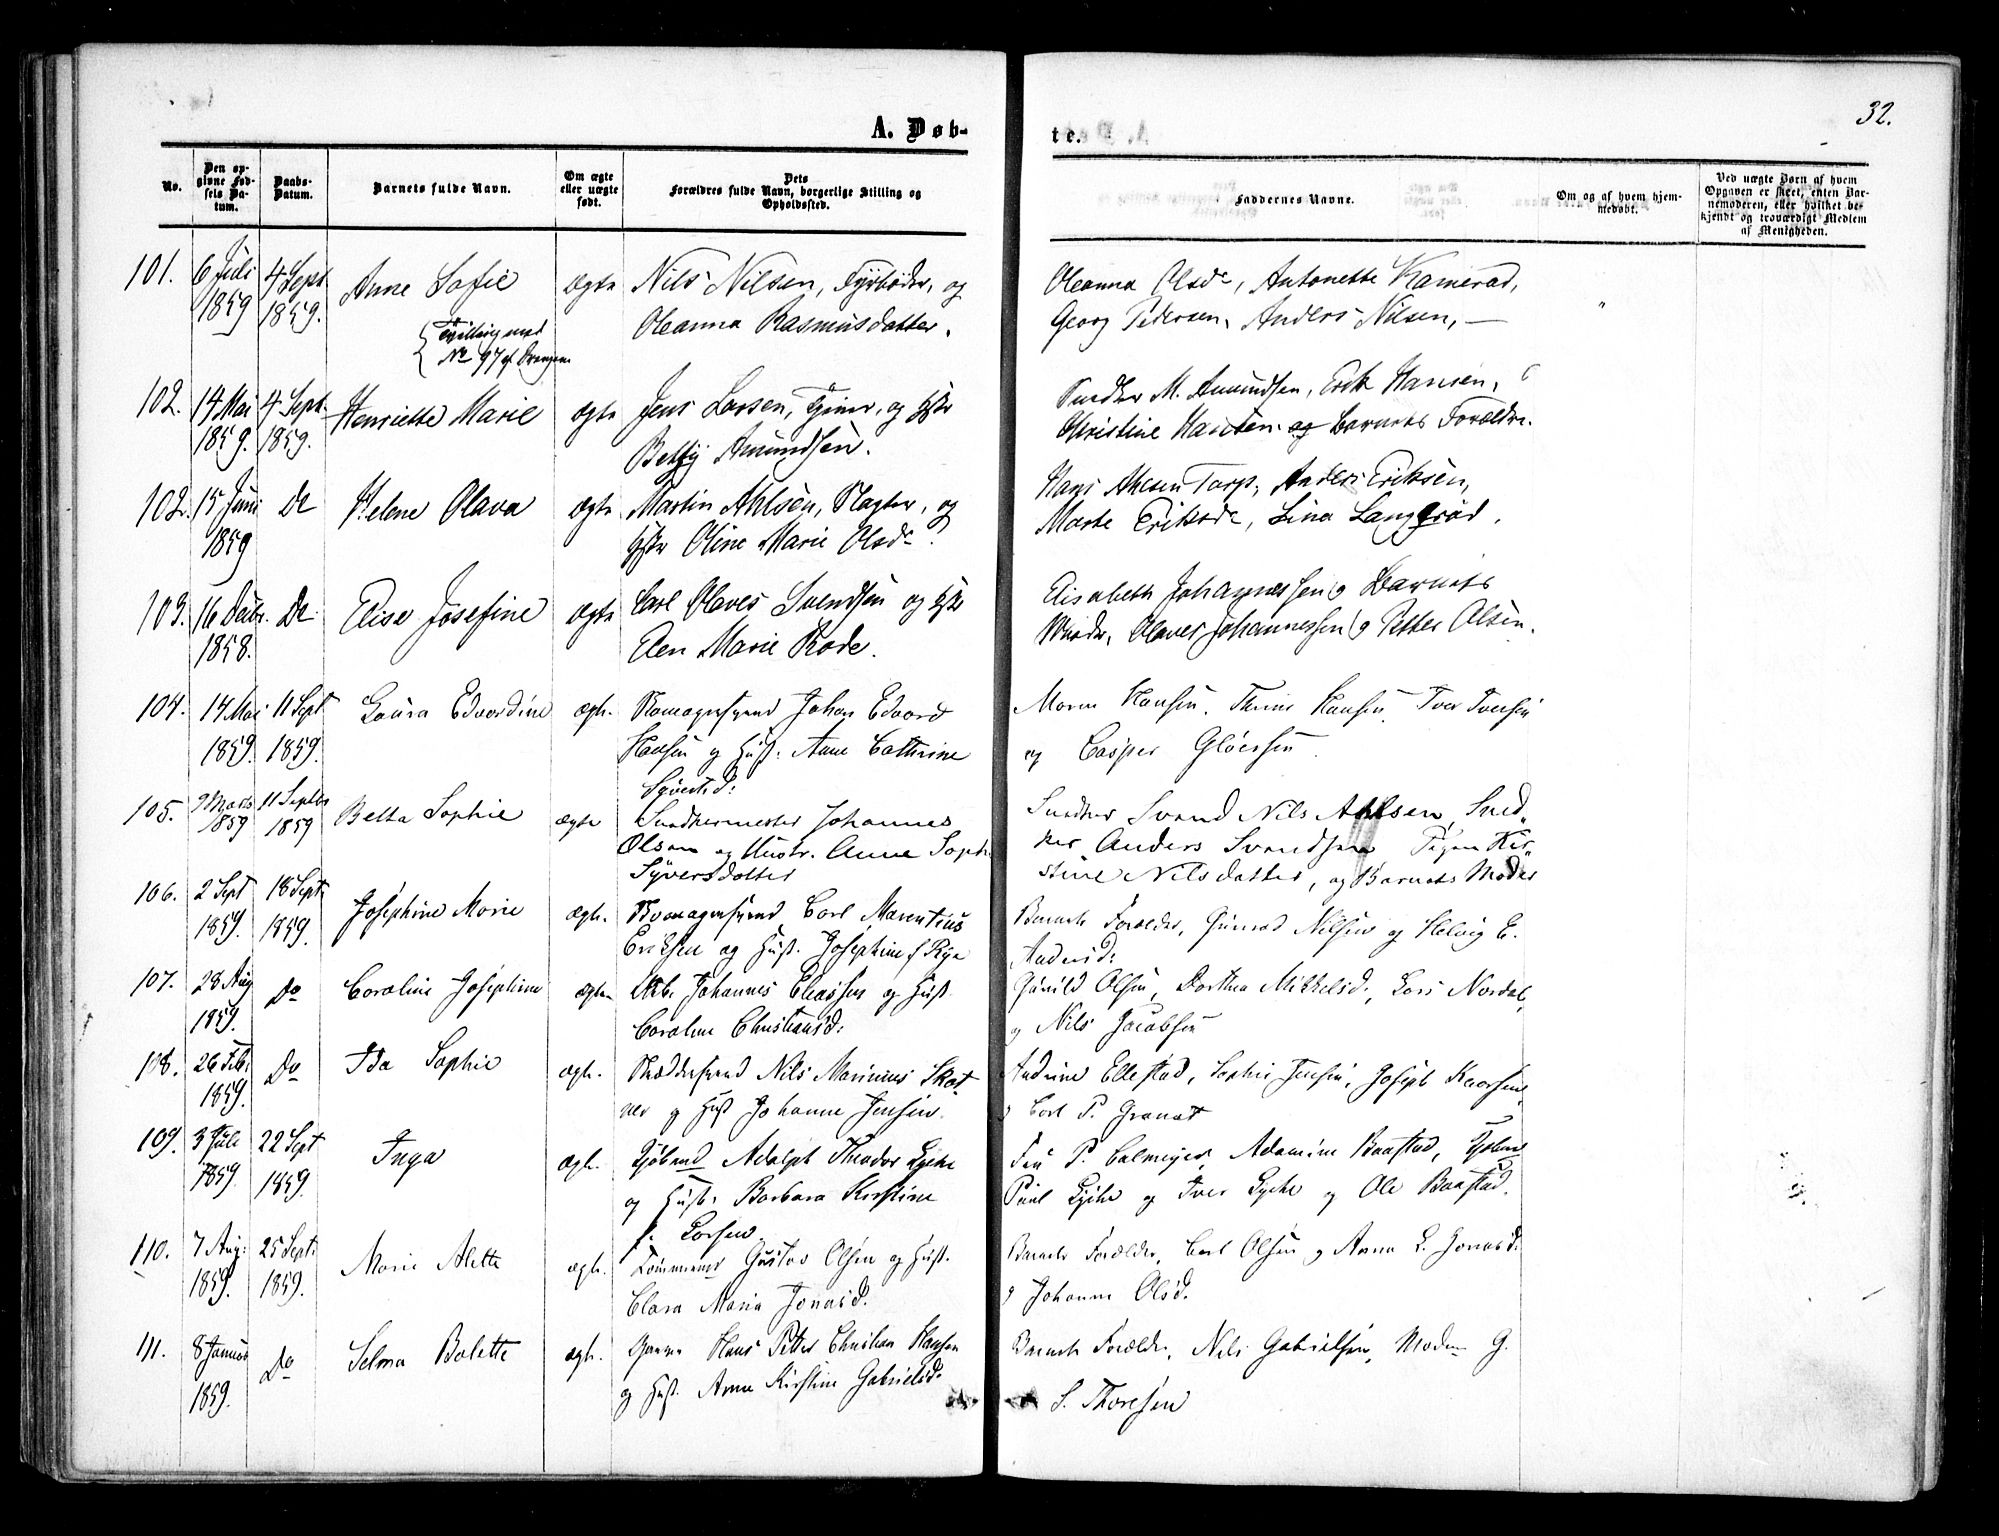 32.
A. Døb-
te.
No.
Den op-
givne Fød-
sels Da-
tum.
Daabs-
Datum.
Barnets fulde Navn.
Om ægte
eller uægte
født.
Dets
Forældres fulde Navn, borgerlige Stilling og
Opholdssted.
Faddernes Navne.
Om og af hvem hjem-
medøbt.
Ved uægte Børn af hvem
Opgaven er skeet, enten Bar-
nemoderen, eller hvilket be-
kjendt og troværdigt Medlem
af Menigheden.
101. 6 Juli 4 Sept. Anne Sofie ægte Nils Nilsen, Fyrbøder, og
1859 1859. Oleanna Rasmusdatter.
{Tvilling med
No 97 Drengen
Oleanna Olsdr, Antonette Kamerad,
Georg Pedersen, Anders Nilsen, —
102. 14 Mai 4 Sept. Henriette Marie ægte Jens Larsen, og Hstr
1859. 1859. Betsy Amundsen.
Snedker M. Amundsen, Erik Hansen,
Christine Hansen og Barnets Forældre.
102. 15 Juni Do Helene Olava ægte Martin Ahlsen, Slagter, og
1859 Hstr Oline Marie Olsdr.
Hans Ahlsen Torp, Anders Eriksen,
Marte Eriksdr, Lina Langerød.
103. 16 Decbr. Do Elise Josefine ægte Carl Olaves Svendsen og Hstr
1858. Elen Marie Rode.
Elisabeth Johannessen og Barnets
Moder, Olaves Johannessen og Petter Olsen.
104. 14 Mai 11 Sept Laura Edvardine ægte. Skomagersvend Johan Edvard
1859. 1859. Hansen og Hust. Anne Cathrine
Syvertsd:
Maren Hansen, Thrine Hansen, Iver Iversen
og Casper Gløersen
105. 9 Marts 11 Septbr Betta Sophie ægte Snedkermester Johannes
1859 1859 Olsen og Hustr. Anne Soph.
Syversdatter
Snedker Svend Nils Ahlsen, Sned-
ker Anders Svendsen Pigen Kir-
stine Nilsdatter, og Barnets Moder
106. 2 Sept 18 Sept. Josephine Marie ægte. Skomagersvend Carl Marentius
1859. 1859. Eriksen og Hust. Josephine f Rye
Barnets Forældre, Gunrad Nilsen og Helvig E.
Andersd:
107. 28 Aug Do Caroline Josephine ægte. Arb. Johannes Eliassen og Hust
1859. Caroline Christiansd:
Gunild Olsen, Dorthea Mikkelsd., Lars Nordal,
og Nils Jacobsen
108. 26 Feb. Do Ida Sophie ægte. Skræddersvend Nils Marinius Skot
1859. ner og Hust Johanne Jensen.
Andrine Ellestad, Sophie Jensen, Joseph Kaarsen
og Carl P. Granat
109. 3 Juli 22 Sept Inga ægte. Adolph Theodor Lyche
1859. 1859. og Hust: Barbara Kirstine
f. Larsen
Fru P. Calmeyer, Adamine Baastad,
Paul Lyche og Iver Lyche og Ole Baastad.
110. 7 Aug: 25 Sept: Marie Alette ægte. Tømmermd Gustav Olsen og Hust.
1859. 1859. Clara Maria Jonasd.
Barnets Forældre, Carl Olsen og Anna L. Jonasd:
og Johanne Olsd.
111. 8 Januar Do Selma Bolette ægte. Hans Petter Christian Hansen
1859. og Hust. Anne Kirstine Gabrielsd.
Barnets Forældre, Nils Gabrielsen, G.
S. Thoresen